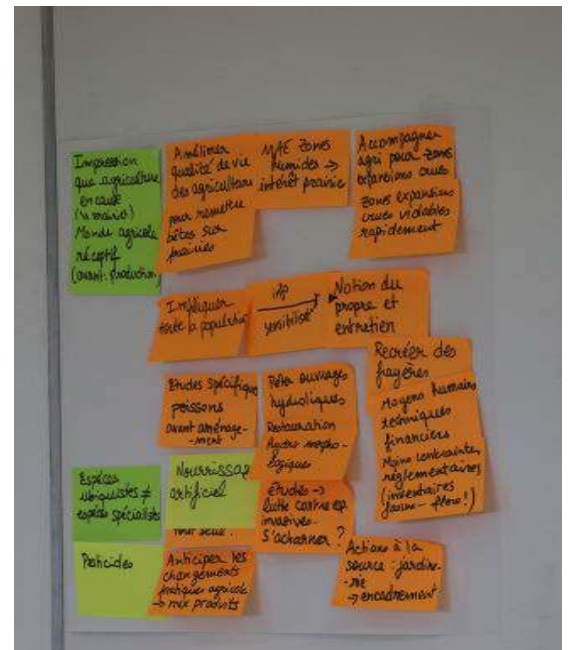 Impression
que agriculture
en cause
Monde agricole
réceptif
(avant: production)
Améliorer
qualité de vie
des agriculteurs
pour remettre
bêtes sur
prairies
MAE zones
humides →
intérêt prairie
Accompagner
agri pour zones
expansions crues
zones expansions
crues vidables
rapidement
Impliquer
toute la population
sensibilisé
Notion du
propre et
entretien
Etudes spécifique
poissons
avant aménage-
-ment
ouvrages
hydroliques
Restauration
hydro morpho-
logiques
Recréer des
frayères
Moyens humains
techniques
financiers
Moins contraintes
règlementaires
(inventaires
faune - flore!)
Espèces
ubiquistes ≠
espèces spécialistes
Nourrissage
artificiel
Etudes →
lutte contre esp
invasives.
S'acharner ?
Pesticides
Anticiper les
changements
pratiques agricole
→ mix produits
Actions à la
source : jardine-
-rie
→ encadrement